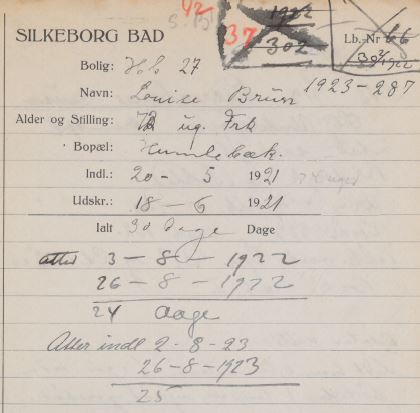 42
37
1922
302
Lb.-Nr 66
30/3 1922
SILKEBORG BAD
Bolig: 27
1923-287
Navn: Louise Brüun
Alder og Stilling: 72 ug. Frk
Bopæl: Humlebæk.
Indl.: 20 - 5 1921
Udskr.: 18 - 6 1921
Ialt 30 dage Dage
atter 3 - 8 - 1922
26 - 8 - 1922
24 dage
Atter indl 2-8-23
26-8-1923
25